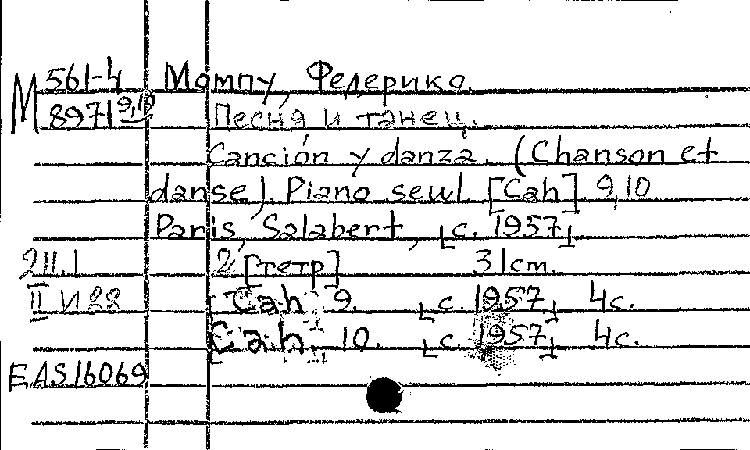 М 561-4 Момпу, Федерико.
8971 9,10 Песня и танец.
Canción y danza. (Chanson et
danse). Piano seul [Cah] 9,10
Paris, Salabert, [c. 1957].
2 [тетр] 31cm.
[Cah] 9. [c. 1957] 4c.
[Cah. 10. [c. 1957] 4c.
EAS16069